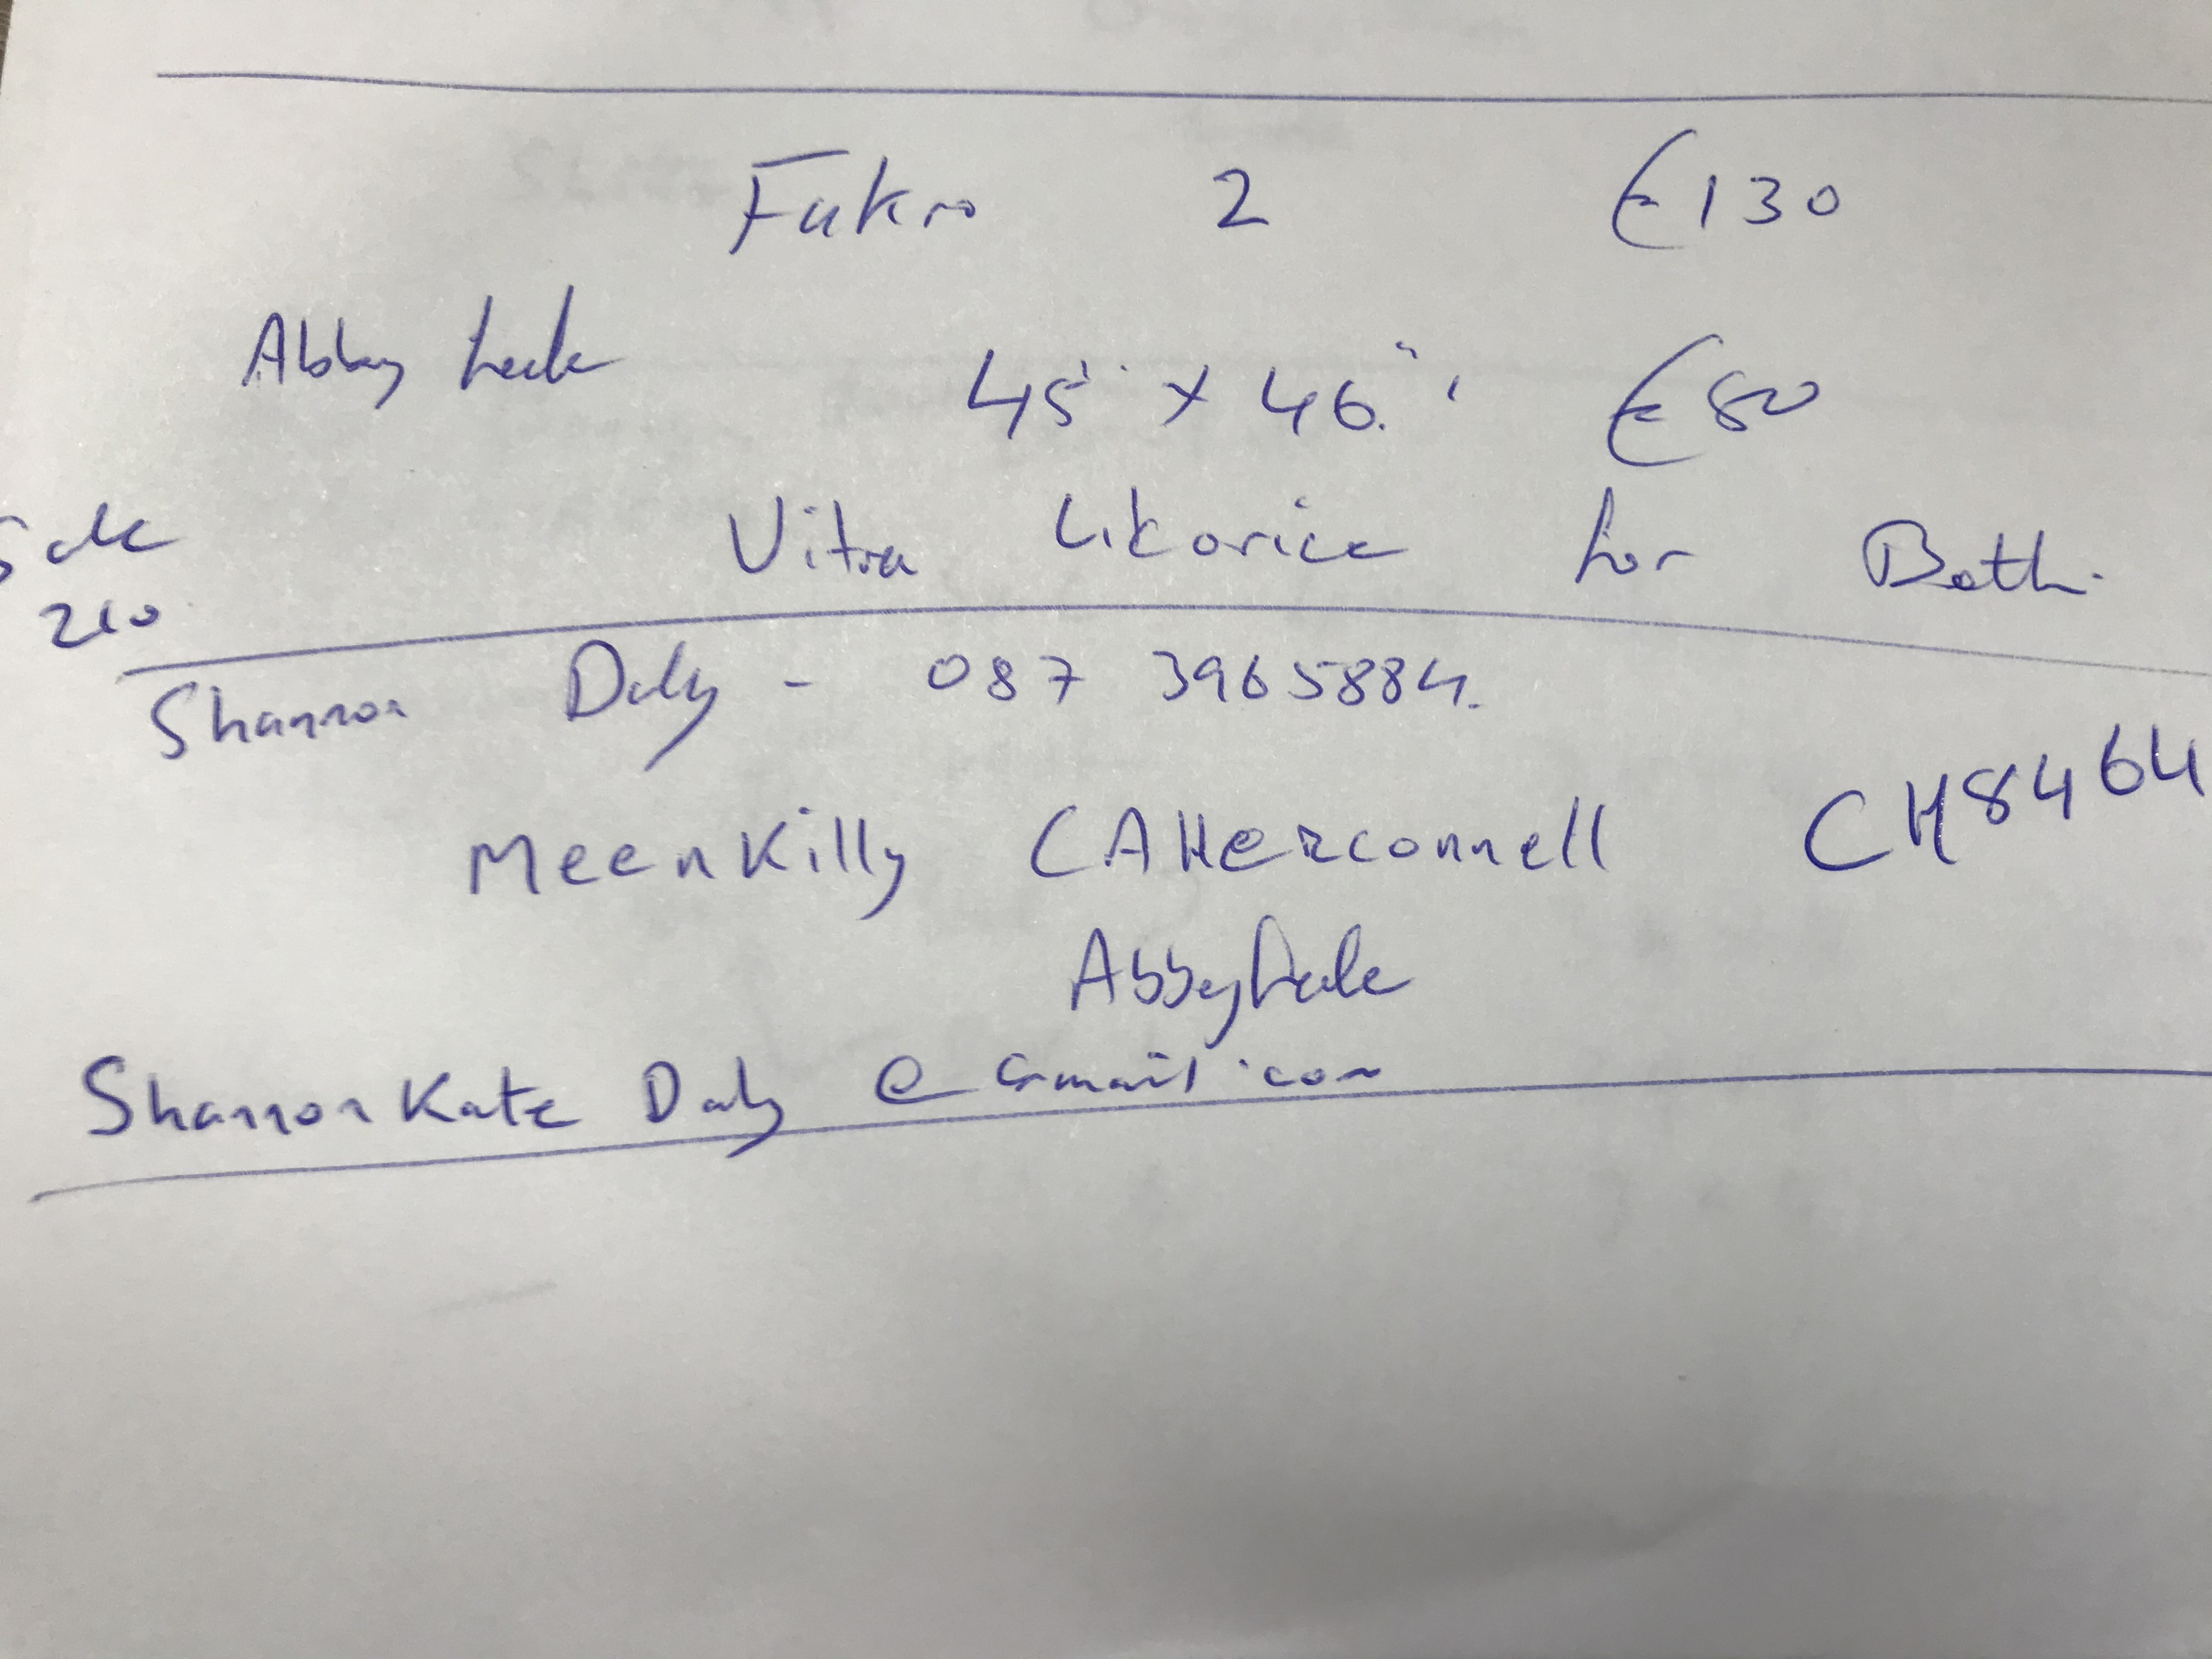 Fakro 2 €130
Abbey feale
45" x 46" €80
Sale Vitra Likorice for Both.
210
Shannon Daly - 087 3965884.
Meenkilly CAHeRconnell CH8464
Abbeyfeale
Shannon Kate Daly @ Gmail.com